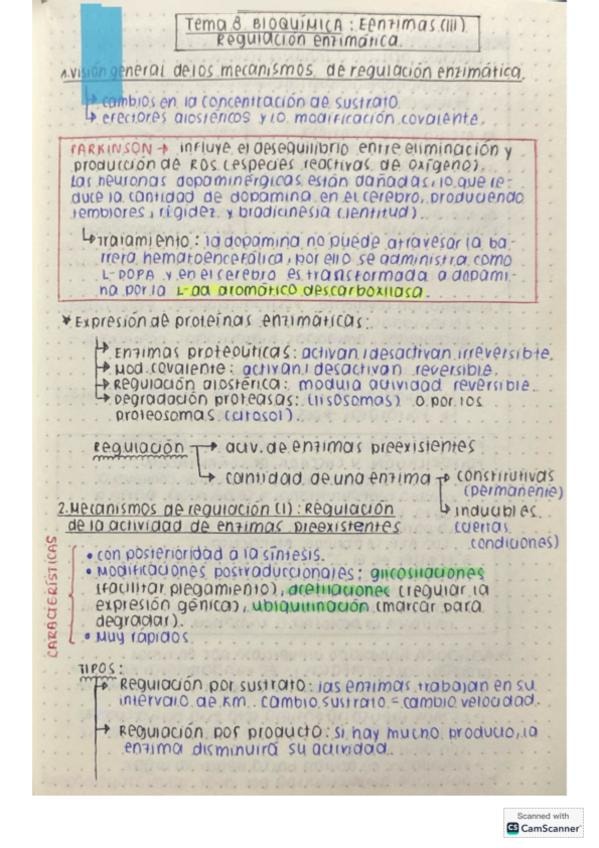 Tema 8 BIOQUÍMICA: Eenzimas (III)
Regulación enzimática.
1. Visión general de los mecanismos de regulación enzimática.
↳ cambios en la concentración de sustrato
↳ efectores alostéricos y/o modificación covalente.
PARKINSON → influye el desequilibrio entre eliminación y
producción de ROS (especies reactivas de oxígeno).
Las neuronas dopaminérgicas están dañadas, lo que re-
duce la cantidad de dopamina en el cerebro, produciendo
temblores, rigidez y bradicinesia (lentitud).
↳ Tratamiento: la dopamina no puede atravesar la ba-
rrera hematoencefálica, por ello se administra como
L-DOPA y en el cerebro es transformada a dopami-
na por la L-aa aromático descarboxilasa.
* Expresión de proteínas enzimáticas:
↳ Enzimas proteolíticas: activan/desactivan irreversible.
↳ Mod. covalente: activan/desactivan reversible.
↳ Regulación alostérica: modula actividad reversible.
↳ Degradación proteasas: (lisosomas) o por los
proteosomas (citosol).
Regulación → activ. de enzimas preexistentes
↳ cantidad de una enzima → constitutivas
(permanente)
↳ inducibles
(ciertas
condiciones)
2. Mecanismos de regulación (I): Regulación
de la actividad de enzimas preexistentes
CARACTERÍSTICAS
• Con posterioridad a la síntesis.
• Modificaciones postraduccionales: glicosilaciones
(facilitar plegamiento), acetilaciones (regular la
expresión génica), ubiquitinación (marcar para
degradar).
• Muy rápidos.
TIPOS:
→ Regulación por sustrato: las enzimas trabajan en su
intervalo de KM. Cambio sustrato = cambio velocidad.
→ Regulación por producto: si hay mucho producto, la
enzima disminuirá su actividad.
Scanned with
CS CamScanner